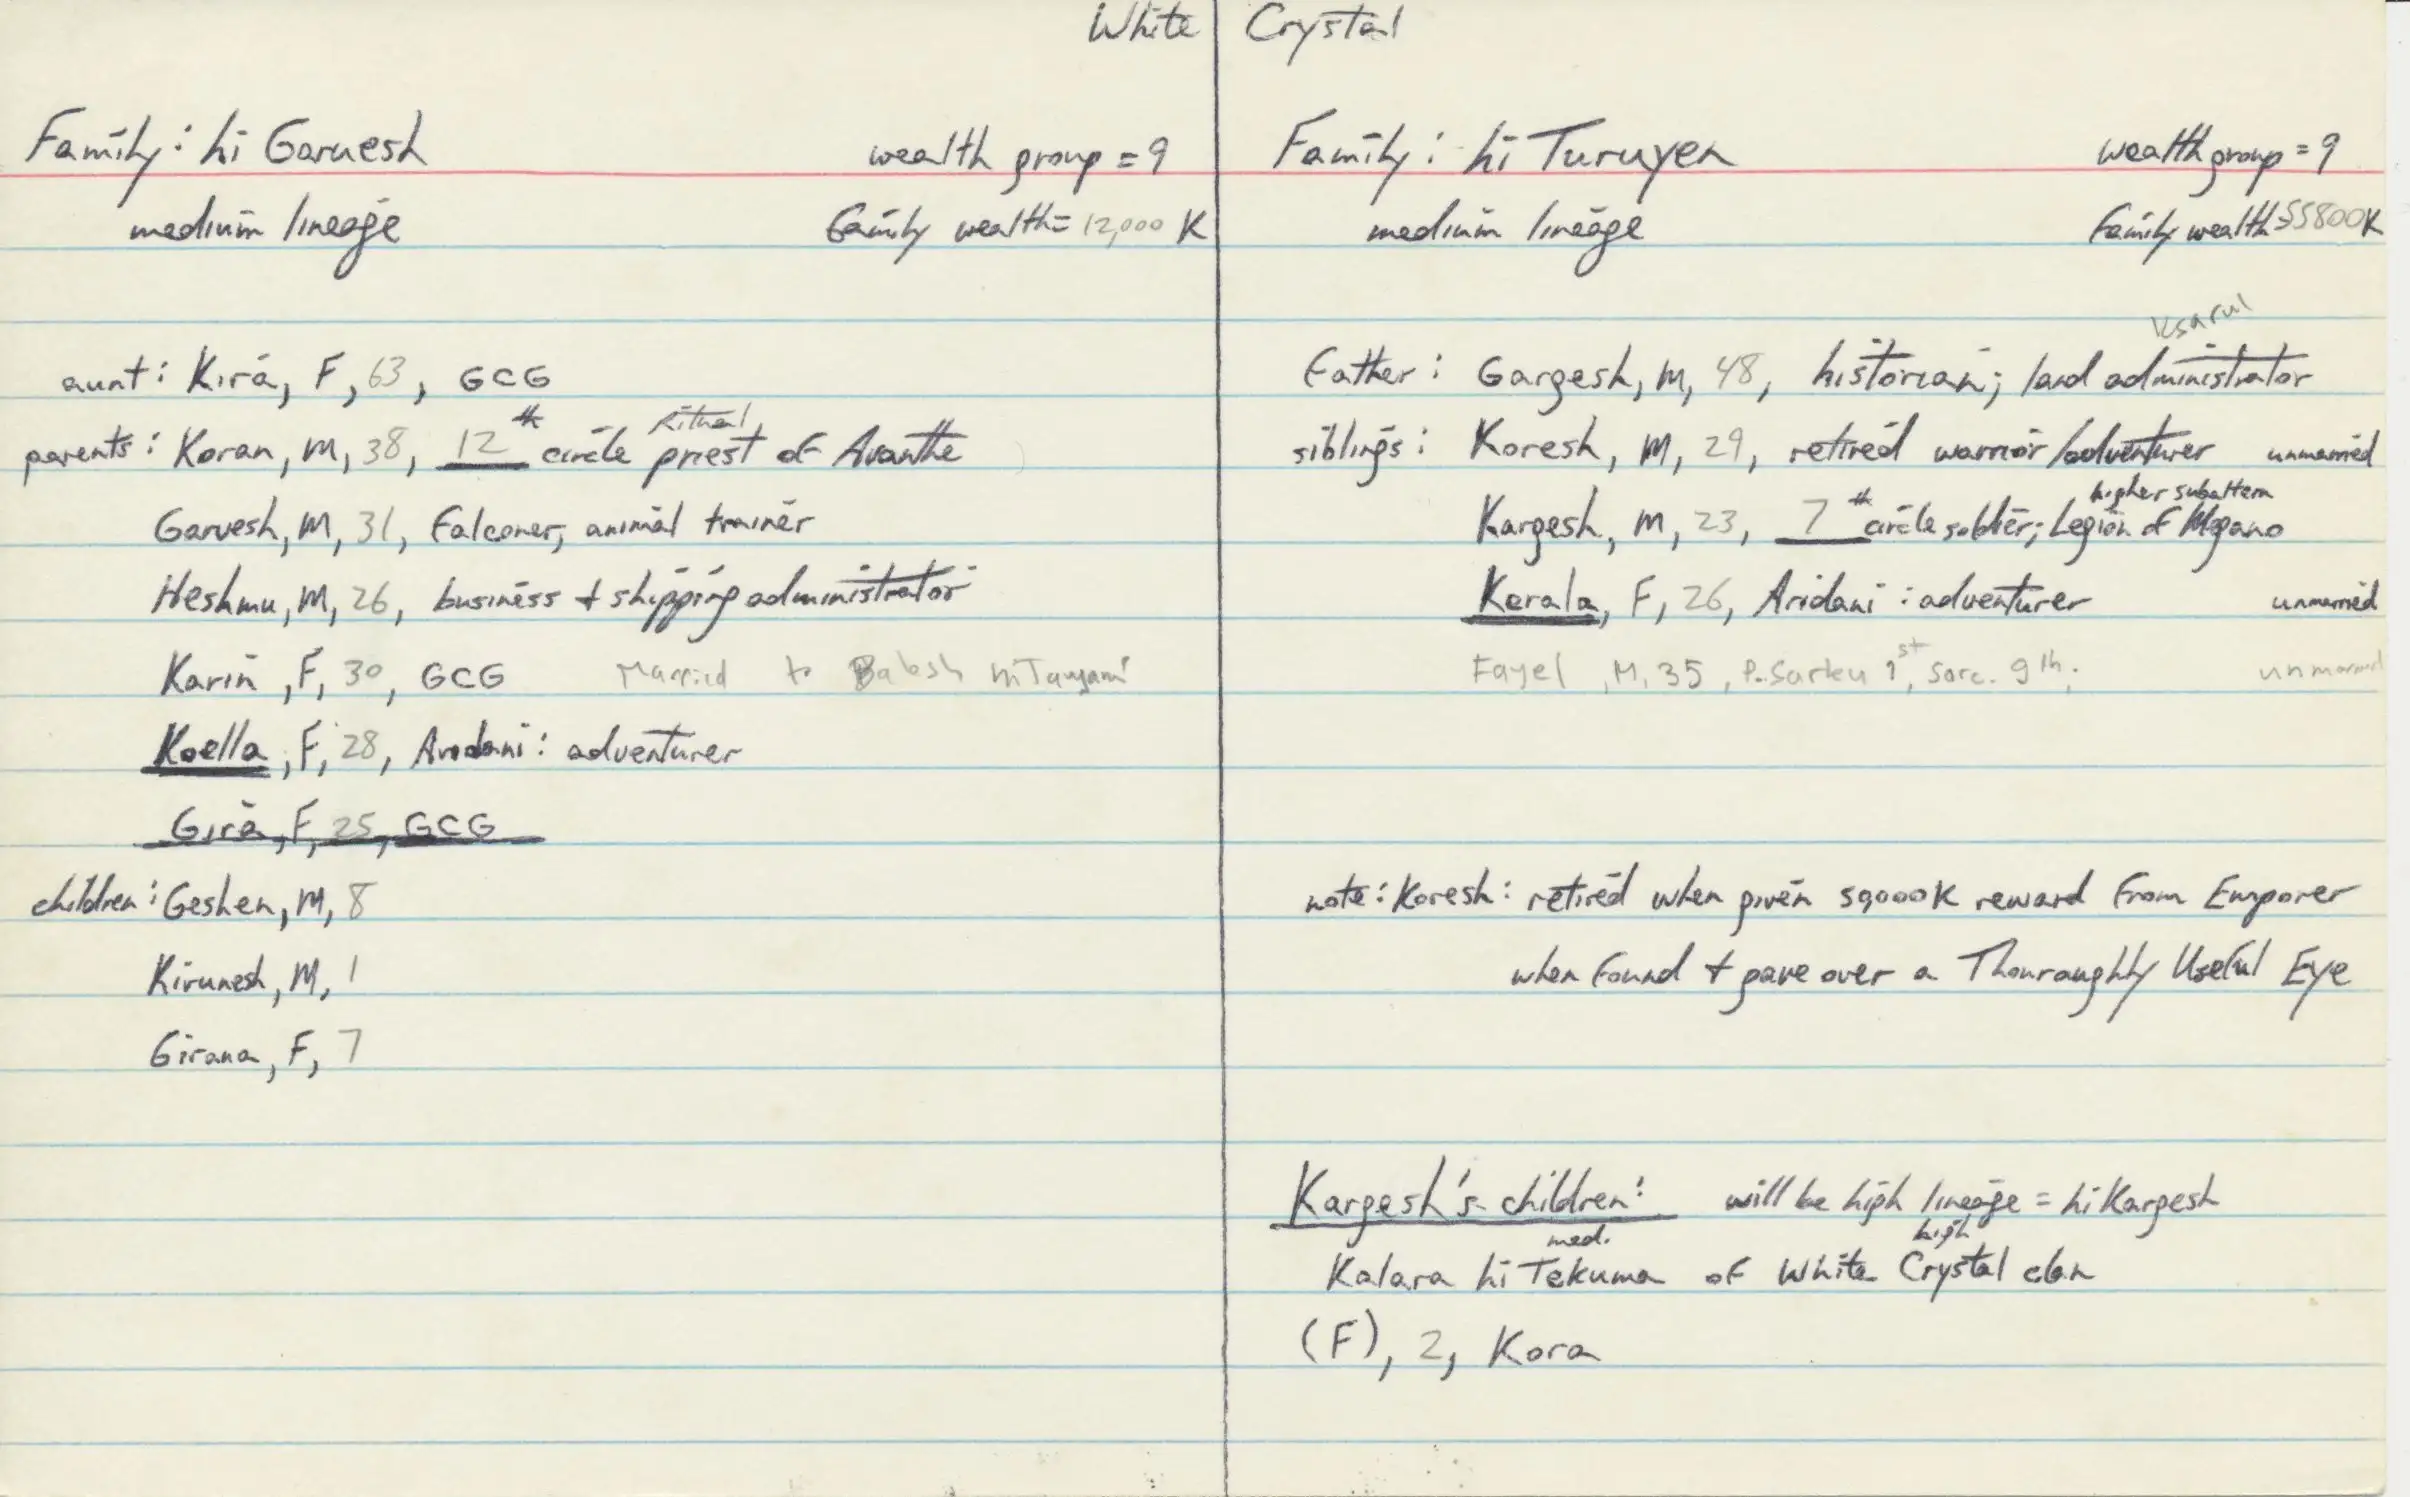 White Crystal
Family: hi Garuesh
wealth group = 9
medium lineage
Family wealth = 12,000 K
aunt: Kira, F, 63, GCG
Ritual
parents: Koran, M, 38, 12th circle priest of Avanthe
Garuesh, M, 31, Falconer, animal trainer
Heshmu, M, 26, business + shipping administrator
Karin, F, 30, GCG Married to Balesh
Koella, F, 28, Aridani: adventurer
Gira, F, 25, GCG
children: Geshen, M, 8
Kirunesh, M, 1
Girana, F, 7
Family: hi Turuyen
wealth group = 9
medium lineage
Family wealth = 55800K
Ksarul
Father: Gargesh, M, 48, historian; land administrator
siblings: Koresh, M, 29, retired warrior/adventurer unmarried
higher subaltern
Kargesh, M, 23, 7th circle soldier; Legion of Mogano
Kerala, F, 26, Aridani: adventurer unmarried
Fayel, M, 35, P. Sarku 1st, Sorc. 9th; unmarried
note: Koresh: retired when given 59000K reward from Emporer
when found + gave over a Thouraughly Useful Eye
Kargesh's children: will be high lineage = hi Kargesh
med. high
Kalara hi Tekuma of White Crystal clan
(F), 2, Kora